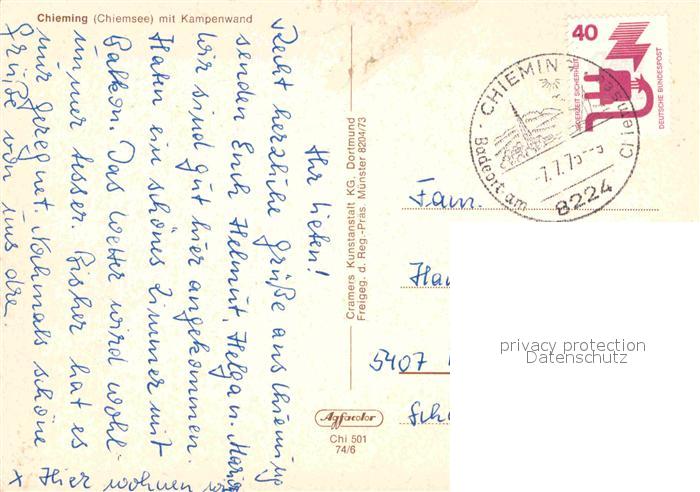 Chieming (Chiemsee) mit Kampenwand
Ihr Lieben!
Recht herzliche Grüße aus Chieming
senden Euch Helmut, Helga u. Mario
Wir sind gut hier angekommen.
Haben ein schönes Zimmer mit
Balkon. Das Wetter wird wohl
immer besser. Bisher hat es
nur geregnet. Nochmals schöne
Grüße von uns drei.
x Hier wohnen wir
Cramers Kunstanstalt KG. Dortmund
Freigeg. d. Reg.-Präs. Münster 8204/73
Agfacolor
Chi 501
74/6
40
JEDERZEIT SICHERHEIT
DEUTSCHE BUNDESPOST
CHIEMIN
Badeort am
Chiemsee
8224
Fam.
5407
privacy protection
Datenschutz